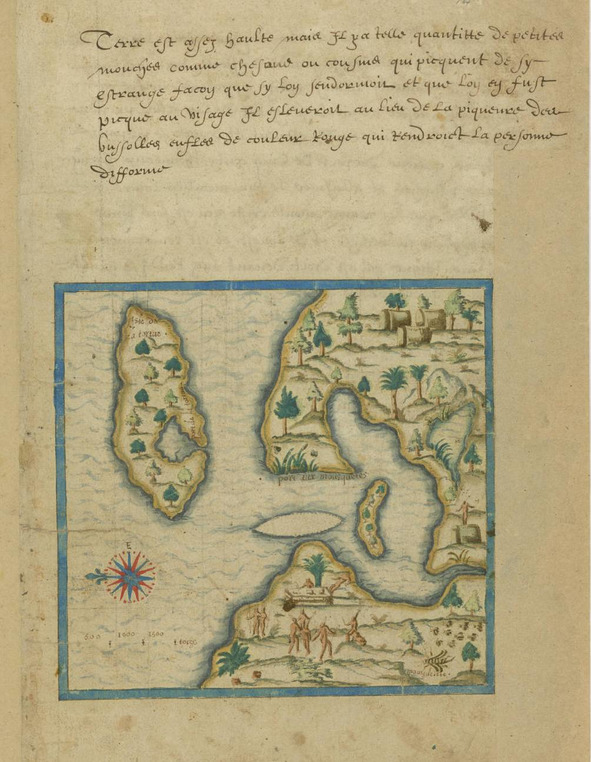 Terre est assez haulte mais Il y a telle quantitte de petites
mouches comme chesans ou cousins qui picquent de sy
estrange facon que sy lon sendormoit et que lon en fust
picque au visage Il esleveroit au lieu de la piqueure des
bussolles enfles de couleur Rouge qui Rendroict la personne
difforme
Isle de
la tortue
port des mousquittes
E
600 1000 1500